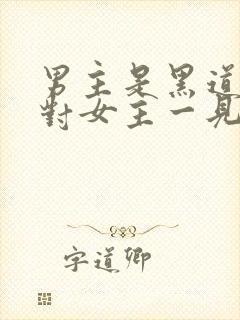 男主是黑道
對女主一見
字道卿